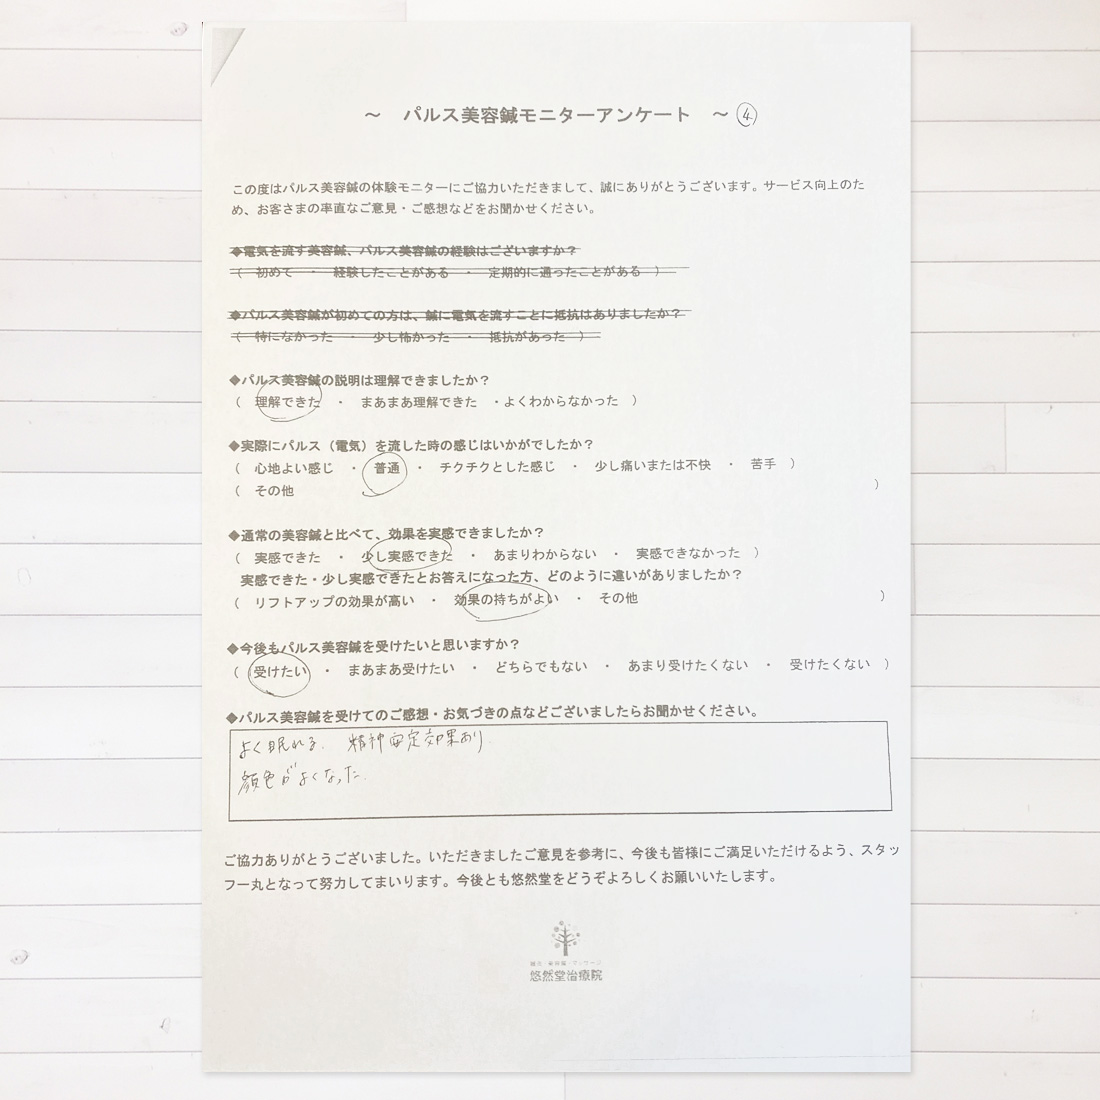 ～　パルス美容鍼モニターアンケート　～ ④
この度はパルス美容鍼の体験モニターにご協力いただきまして、誠にありがとうございます。サービス向上のた
め、お客さまの率直なご意見・ご感想などをお聞かせください。
◆電気を流す美容鍼、パルス美容鍼の経験はございますか？
（　初めて　・　経験したことがある　・　定期的に通ったことがある　）
◆パルス美容鍼が初めての方は、鍼に電気を流すことに抵抗はありましたか？
（　特になかった　・　少し怖かった　・　抵抗があった　）
◆パルス美容鍼の説明は理解できましたか？
（　理解できた　・　まあまあ理解できた　・よくわからなかった　）
◆実際にパルス（電気）を流した時の感じはいかがでしたか？
（　心地よい感じ　・　普通　・　チクチクとした感じ　・　少し痛いまたは不快　・　苦手　）
（　その他　）
◆通常の美容鍼と比べて、効果を実感できましたか？
（　実感できた　・　少し実感できた　・　あまりわからない　・　実感できなかった　）
実感できた・少し実感できたとお答えになった方、どのように違いがありましたか？
（　リフトアップの効果が高い　・　効果の持ちがよい　・　その他　）
◆今後もパルス美容鍼を受けたいと思いますか？
（　受けたい　・　まあまあ受けたい　・　どちらでもない　・　あまり受けたくない　・　受けたくない　）
◆パルス美容鍼を受けてのご感想・お気づきの点などございましたらお聞かせください。
よく眠れる。　精神安定効果あり。
顔色がよくなった。
ご協力ありがとうございました。いただきましたご意見を参考に、今後も皆様にご満足いただけるよう、スタッ
フ一丸となって努力してまいります。今後とも悠然堂をどうぞよろしくお願いいたします。
悠然堂治療院